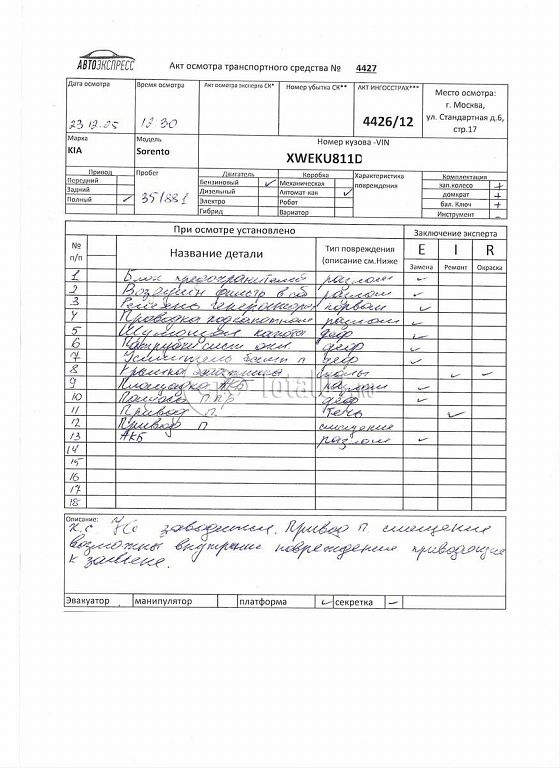 АВТОЭКСПРЕСС
Акт осмотра транспортного средства № 4427
Дата осмотра
Время осмотра
Акт осмотра эксперта СК*
Номер убытка СК**
АКТ ИНГОССТРАХ***
Место осмотра:
г. Москва,
ул. Стандартная д.6,
стр.17
23.12.05
12 30
4426/12
Марка
Модель
Номер кузова -VIN
KIA
Sorento
XWEKU811D
Привод
Пробег
Двигатель
Коробка
Характеристика
повреждения
Комплектация
Передний
Бензиновый ✓
Механическая
зап.колесо +
Задний
Дизельный
Автомат как ✓
домкрат +
Полный ✓
35/881
Электро
Робот
бал. Ключ +
Гибрид
Вариатор
Инструмент -
При осмотре установлено
Заключение эксперта
№
п/п
Название детали
Тип повреждения
(описание см.Ниже
E I R
Замена
Ремонт
Окраска
1 Блок предохранителей разлом ✓
2 Воздушн фильтр в сб разлом ✓
3 генератора порван ✓
4 Проводка подкапотная разлом ✓
5 Шумоизол капота деф ✓
6 Патрубки сист охл деф ✓
7 Усилитель балки п деф ✓
8 сколы ✓ ✓
9 Площадка АКБ разлом ✓
10 деф ✓
11 Привод п. течь ✓
12 Привод п смещение
13 АКБ разлом ✓
14
15
16
17
18
Описание:
Не заводится. Привод п. смещение
возможны внутренн повреждения приводящие
к замене.
Эвакуатор
манипулятор
платформа ✓
секретка -